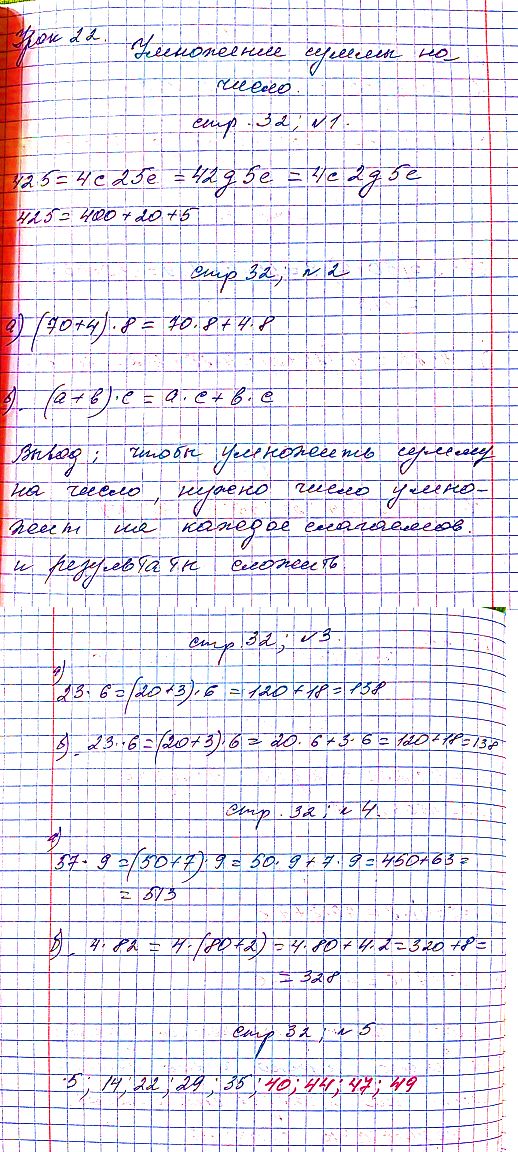 Урок 22.
Умножение суммы на
число.
стр. 32; №1.
425 = 4с 25е = 42д 5е = 4с 2д 5е
425 = 400 + 20 + 5
стр 32; №2
а) (70+4)·8 = 70·8+4·8
б). (а+в)·с = а·с+в·с
Вывод; чтобы умножить сумму
на число, нужно число умно-
жит на каждое слагаемов.
и результаты сложить
стр. 32; №3.
а)
23·6=(20+3)·6 =120+18=138
б). 23·6=(20+3)·6 = 20·6+3·6=120+18=138
стр. 32; №4.
а)
57·9 =(50+7)·9=50·9+7·9=450+63=
= 513
б). 4·82 = 4·(80+2) =4·80+4·2=320+8=
= 328
стр 32; №5
5; 14; 22; 29; 35; 40; 44; 47; 49